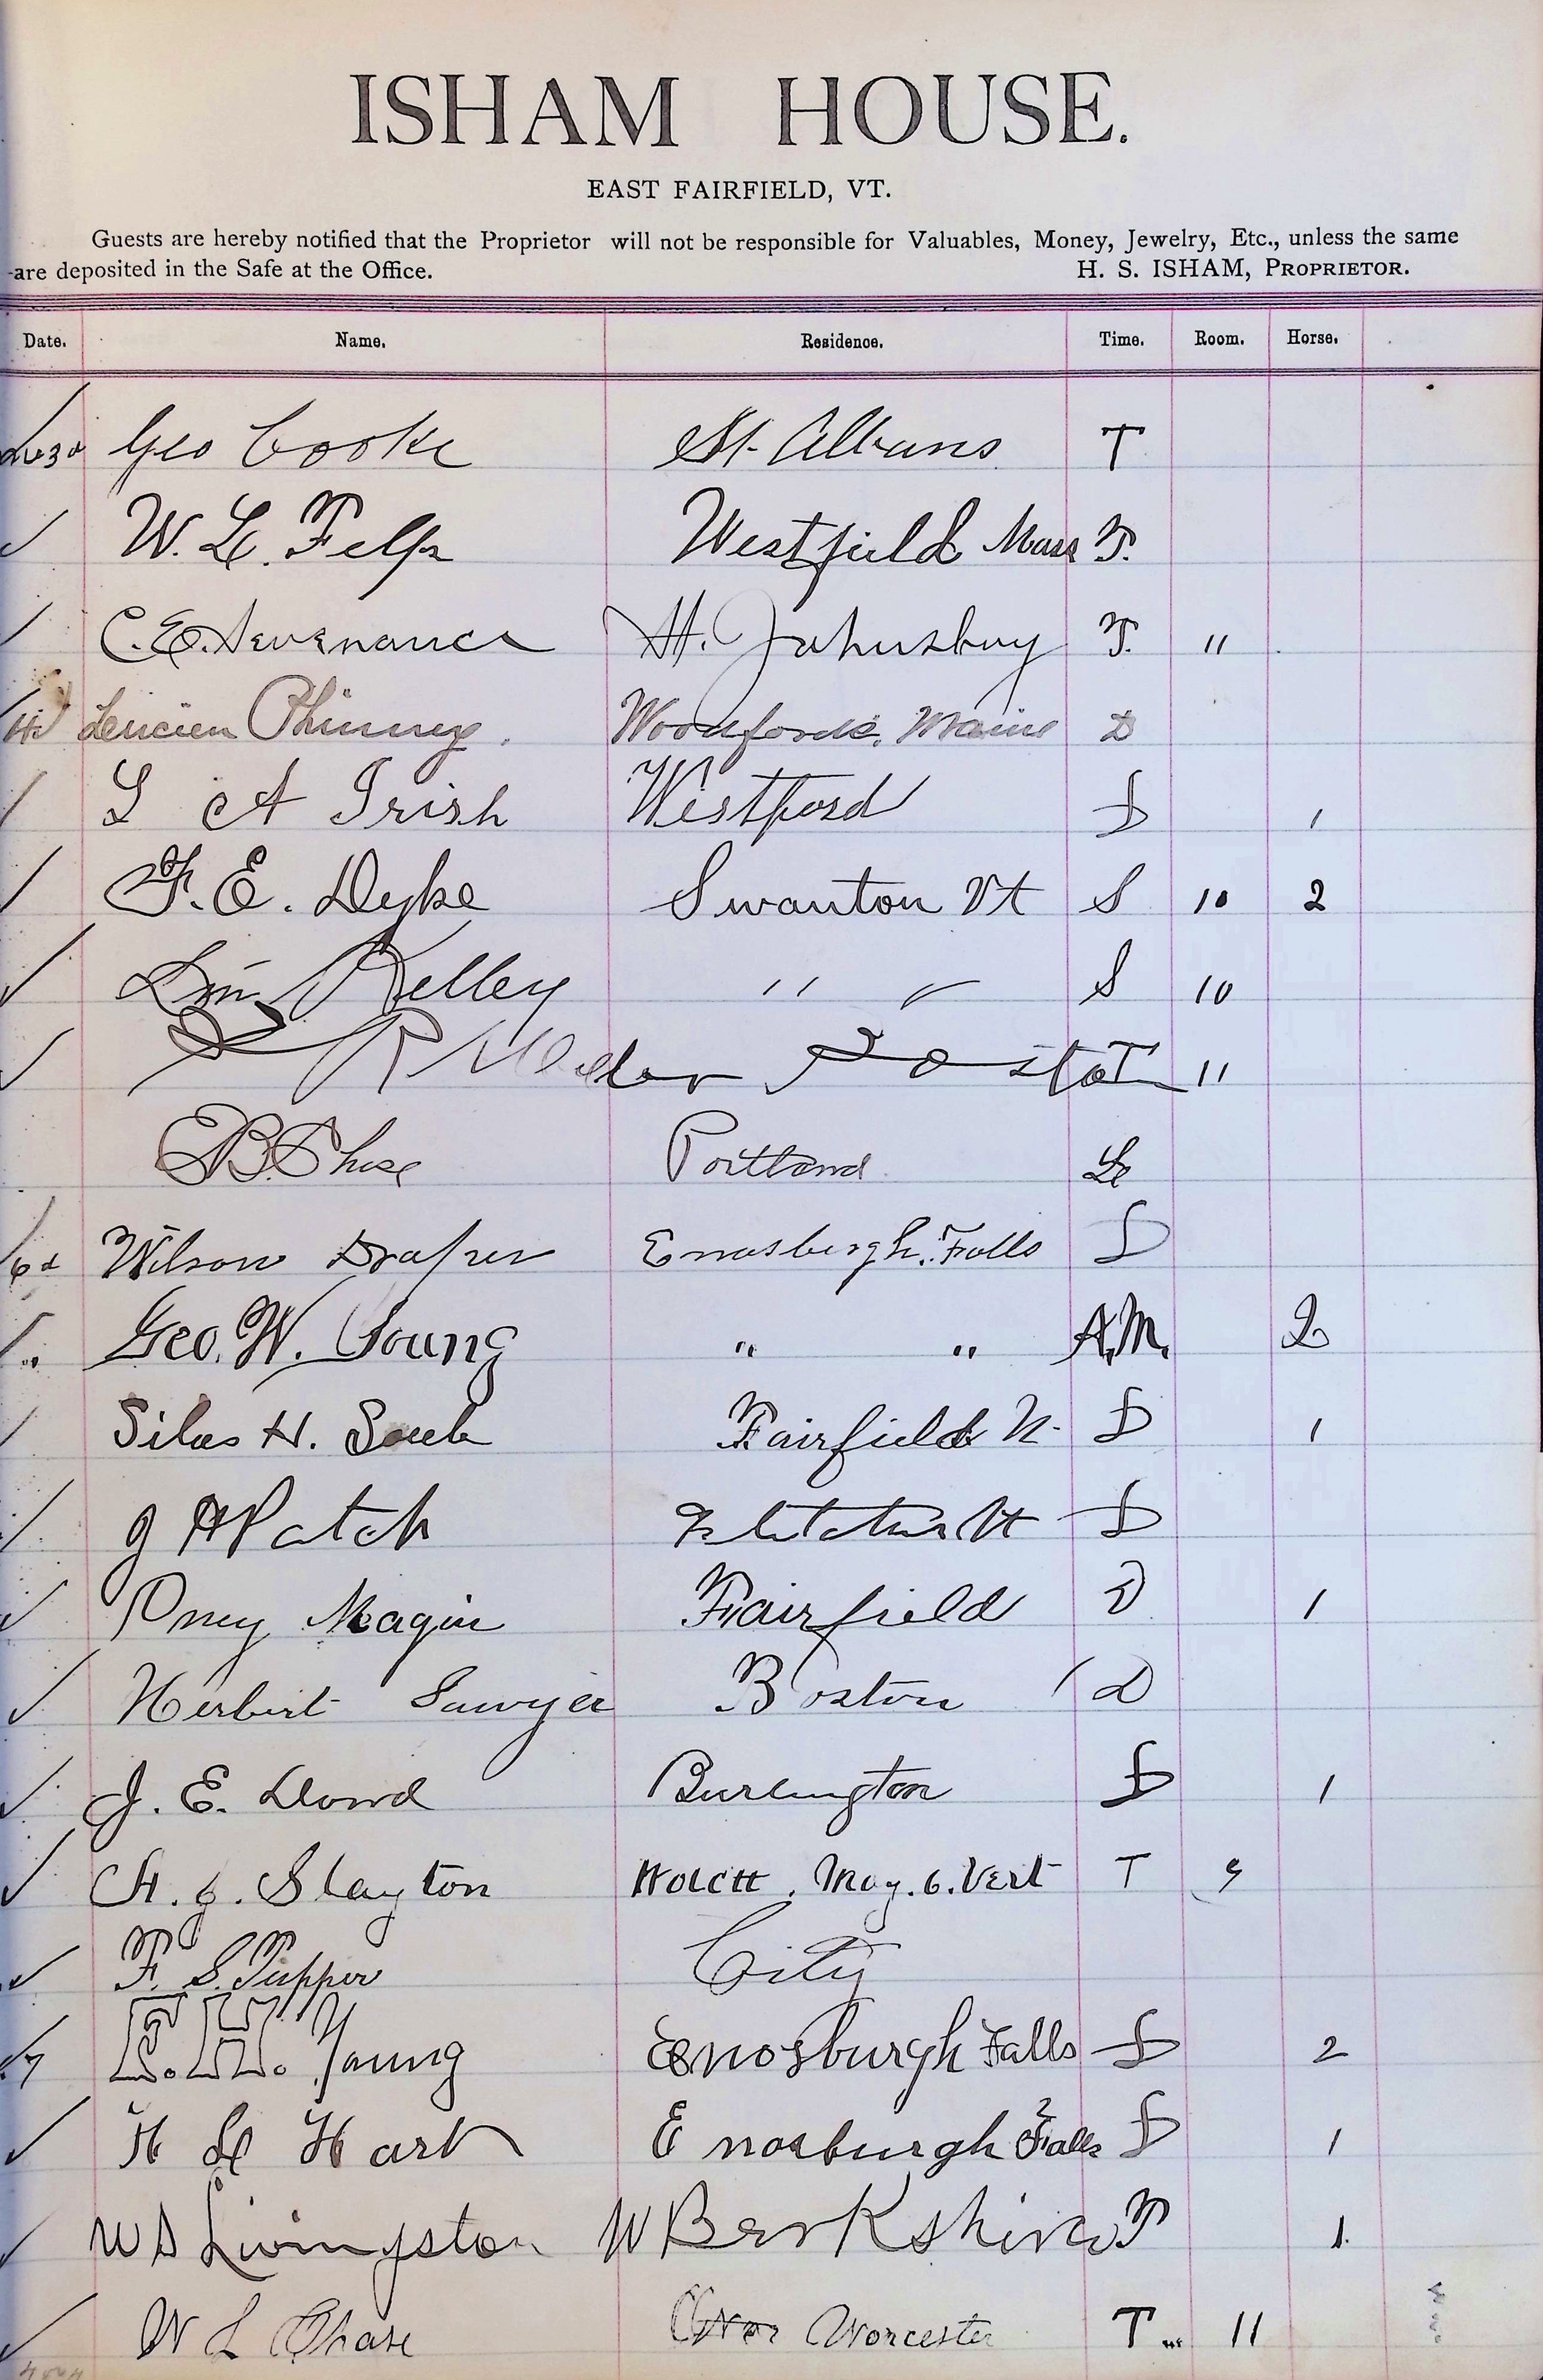 ISHAM HOUSE.
EAST FAIRFIELD, VT.
Guests are hereby notified that the Proprietor will not be responsible for Valuables, Money, Jewelry, Etc., unless the same
are deposited in the Safe at the Office. H. S. ISHAM, PROPRIETOR.
Date. Name. Residence. Time. Room. Horse.
Geo Cooke St. Albans T
W. L. Felps Westfield Mass T.
C. E. Severance St. Johnsbury T. 11
Lucien Phinney. Woodfords. Maine D
L A Irish Westford D 1
F. E. Dyke Swanton Vt S 10 2
Kelley " " S 10
T 11
E B Chase Portland L
6d Wilson Draper Enosburgh. Falls D
" Geo. W. Young " " A.M. 2
Silas H. Soule Fairfield D 1
J H Patch Fletcher Vt D
Magin Fairfield D 1
Herbert Sawyer Boston D
J. E. Dowd Burlington D 1
H. J. Slayton Wolctt. May. 6. Vert T 9
F. S. Tupper City
7 E. H. Young Enosburgh Falls D 2
H L Hart Enosburgh Falls D 1
W S Livingston W Berkshire T 1.
W L Chase Worcester T " 11